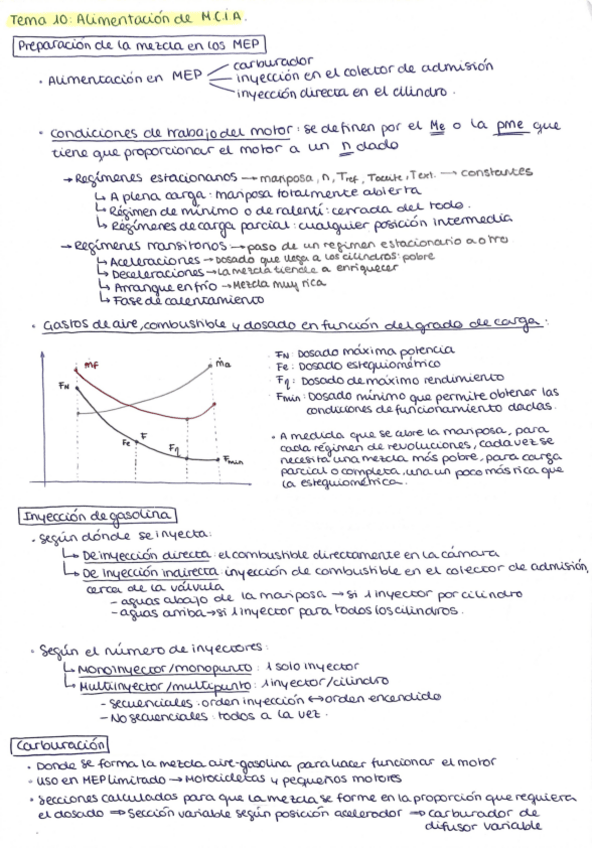 Tema 10: Alimentación de M.C.I.A.
Preparación de la mezcla en los MEP
· Alimentación en MEP
carburador
inyección en el colector de admisión
inyección directa en el cilindro.
· Condiciones de trabajo del motor: se definen por el Me o la pme que
tiene que proporcionar el motor a un n dado
→ Regímenes estacionarios → mariposa, n, Tref, Taceite, Text. → constantes
↳ A plena carga: mariposa totalmente abierta
↳ Régimen de mínimo o de ralentí: cerrada del todo.
↳ Regímenes de carga parcial: cualquier posición intermedia
→ Regímenes transitorios → paso de un regimen estacionario a otro
↳ Aceleraciones → Dosado que llega a los cilindros: pobre
↳ Deceleraciones → la mezcla tiende a enriquecer
↳ Arranque en frío → Mezcla muy rica
↳ Fase de calentamiento
· Gastos de aire, combustible y dosado en función del grado de carga:
ṁf
ṁa
FN
Fe
F
Fη
Fmin
FN: Dosado máxima potencia
Fe: Dosado estequiométrico
Fη: Dosado de máximo rendimiento
Fmin: Dosado mínimo que permite obtener las
condiciones de funcionamiento dadas.
· A medida que se abre la mariposa, para
cada régimen de revoluciones, cada vez se
necesita una mezcla más pobre, para carga
parcial o completa, una un poco más rica que
la estequiométrica.
Inyección de gasolina
· Según dónde se inyecta:
↳ De inyección directa: el combustible directamente en la cámara
↳ De inyección indirecta: inyección de combustible en el colector de admisión,
cerca de la válvula
- aguas abajo de la mariposa → si 1 inyector por cilindro
- aguas arriba → si 1 inyector para todos los cilindros.
· Según el número de inyectores:
↳ Monoinyector/monopunto: 1 solo inyector
↳ Multiinyector/multipunto: 1 inyector/cilindro
- secuenciales: orden inyección ↔ orden encendido
- No secuenciales: todos a la vez.
Carburación
· Donde se forma la mezcla aire-gasolina para hacer funcionar el motor
· Uso en MEP limitado → Motocicletas y pequeños motores
· Secciones calculadas para que la mezcla se forme en la proporción que requiera
el dosado ⇒ Sección variable según posición acelerador → carburador de
difusor variable